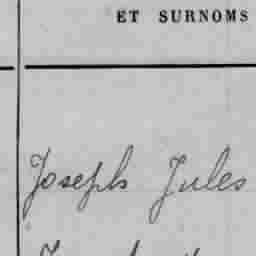 ET SURNOMS
Joseph Jules